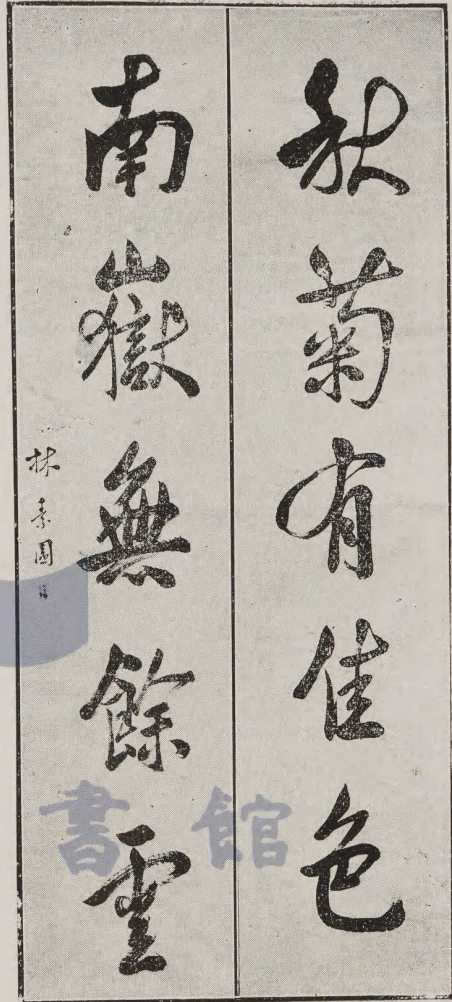 秋菊有佳色
南嶽無餘雲
林素園
書館